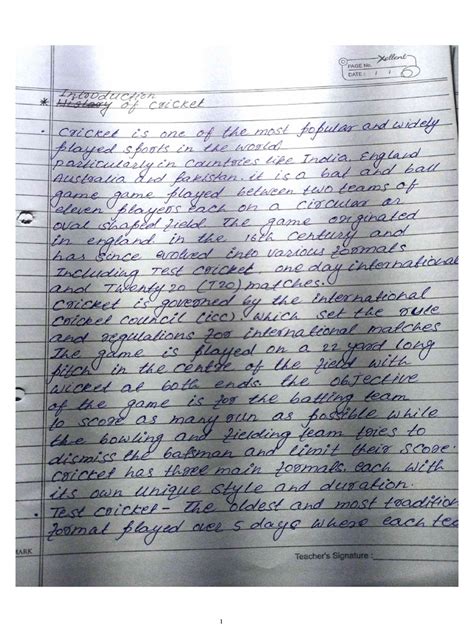 Xellent
PAGE No.
DATE : 1 1
Introduction
* History of cricket
• Cricket is one of the most popular and widely
played sports in the world.
particularly in countries like India, England
Australia and Pakistan. it is a bat and ball
game game played between two teams of
eleven players each on a circular or
oval shaped field. The game originated
in england in the 16th century and
has since evolved into various formats
Including Test cricket one day international
and Twenty 20 (T20) matches.
Cricket is governed by the international
Cricket Council (icc), which set the rule
and regulations for international matches
The game is played on a 22 yard long
pitch in the centre of the field with
wicket at both ends. the objective
of the game is for the batting team
to score as many run as possible while
the bowling and fielding team tries to
dismiss the batsman and limit their score.
cricket has three main formats. each with
its own unique style and duration.
• Test cricket - The oldest and most tradition
format played over 5 days where each tea
MARK
Teacher's Signature :
1